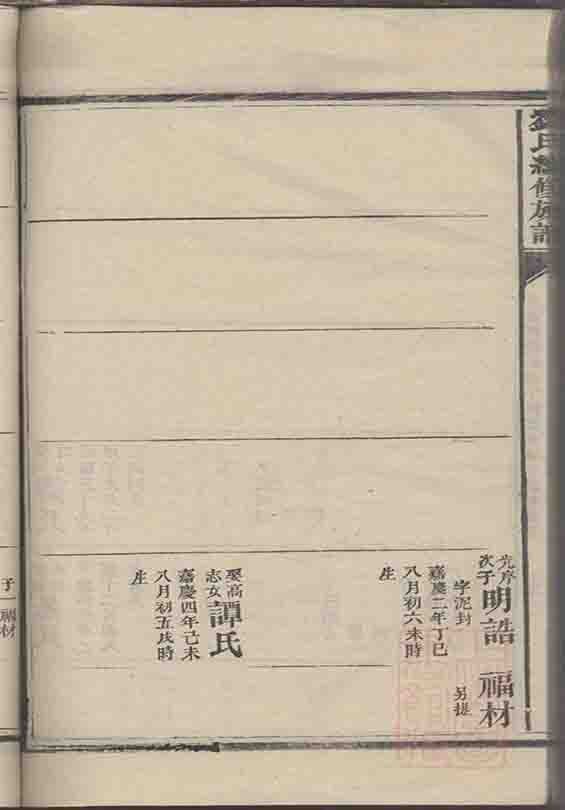 劉氏總修族譜
光序
次子
明誥
福材
字泥封
另提
嘉慶二年丁巳
八月初六未時
生
娶高
志女
譚氏
嘉慶四年己未
八月初五戌時
生
子一
福材